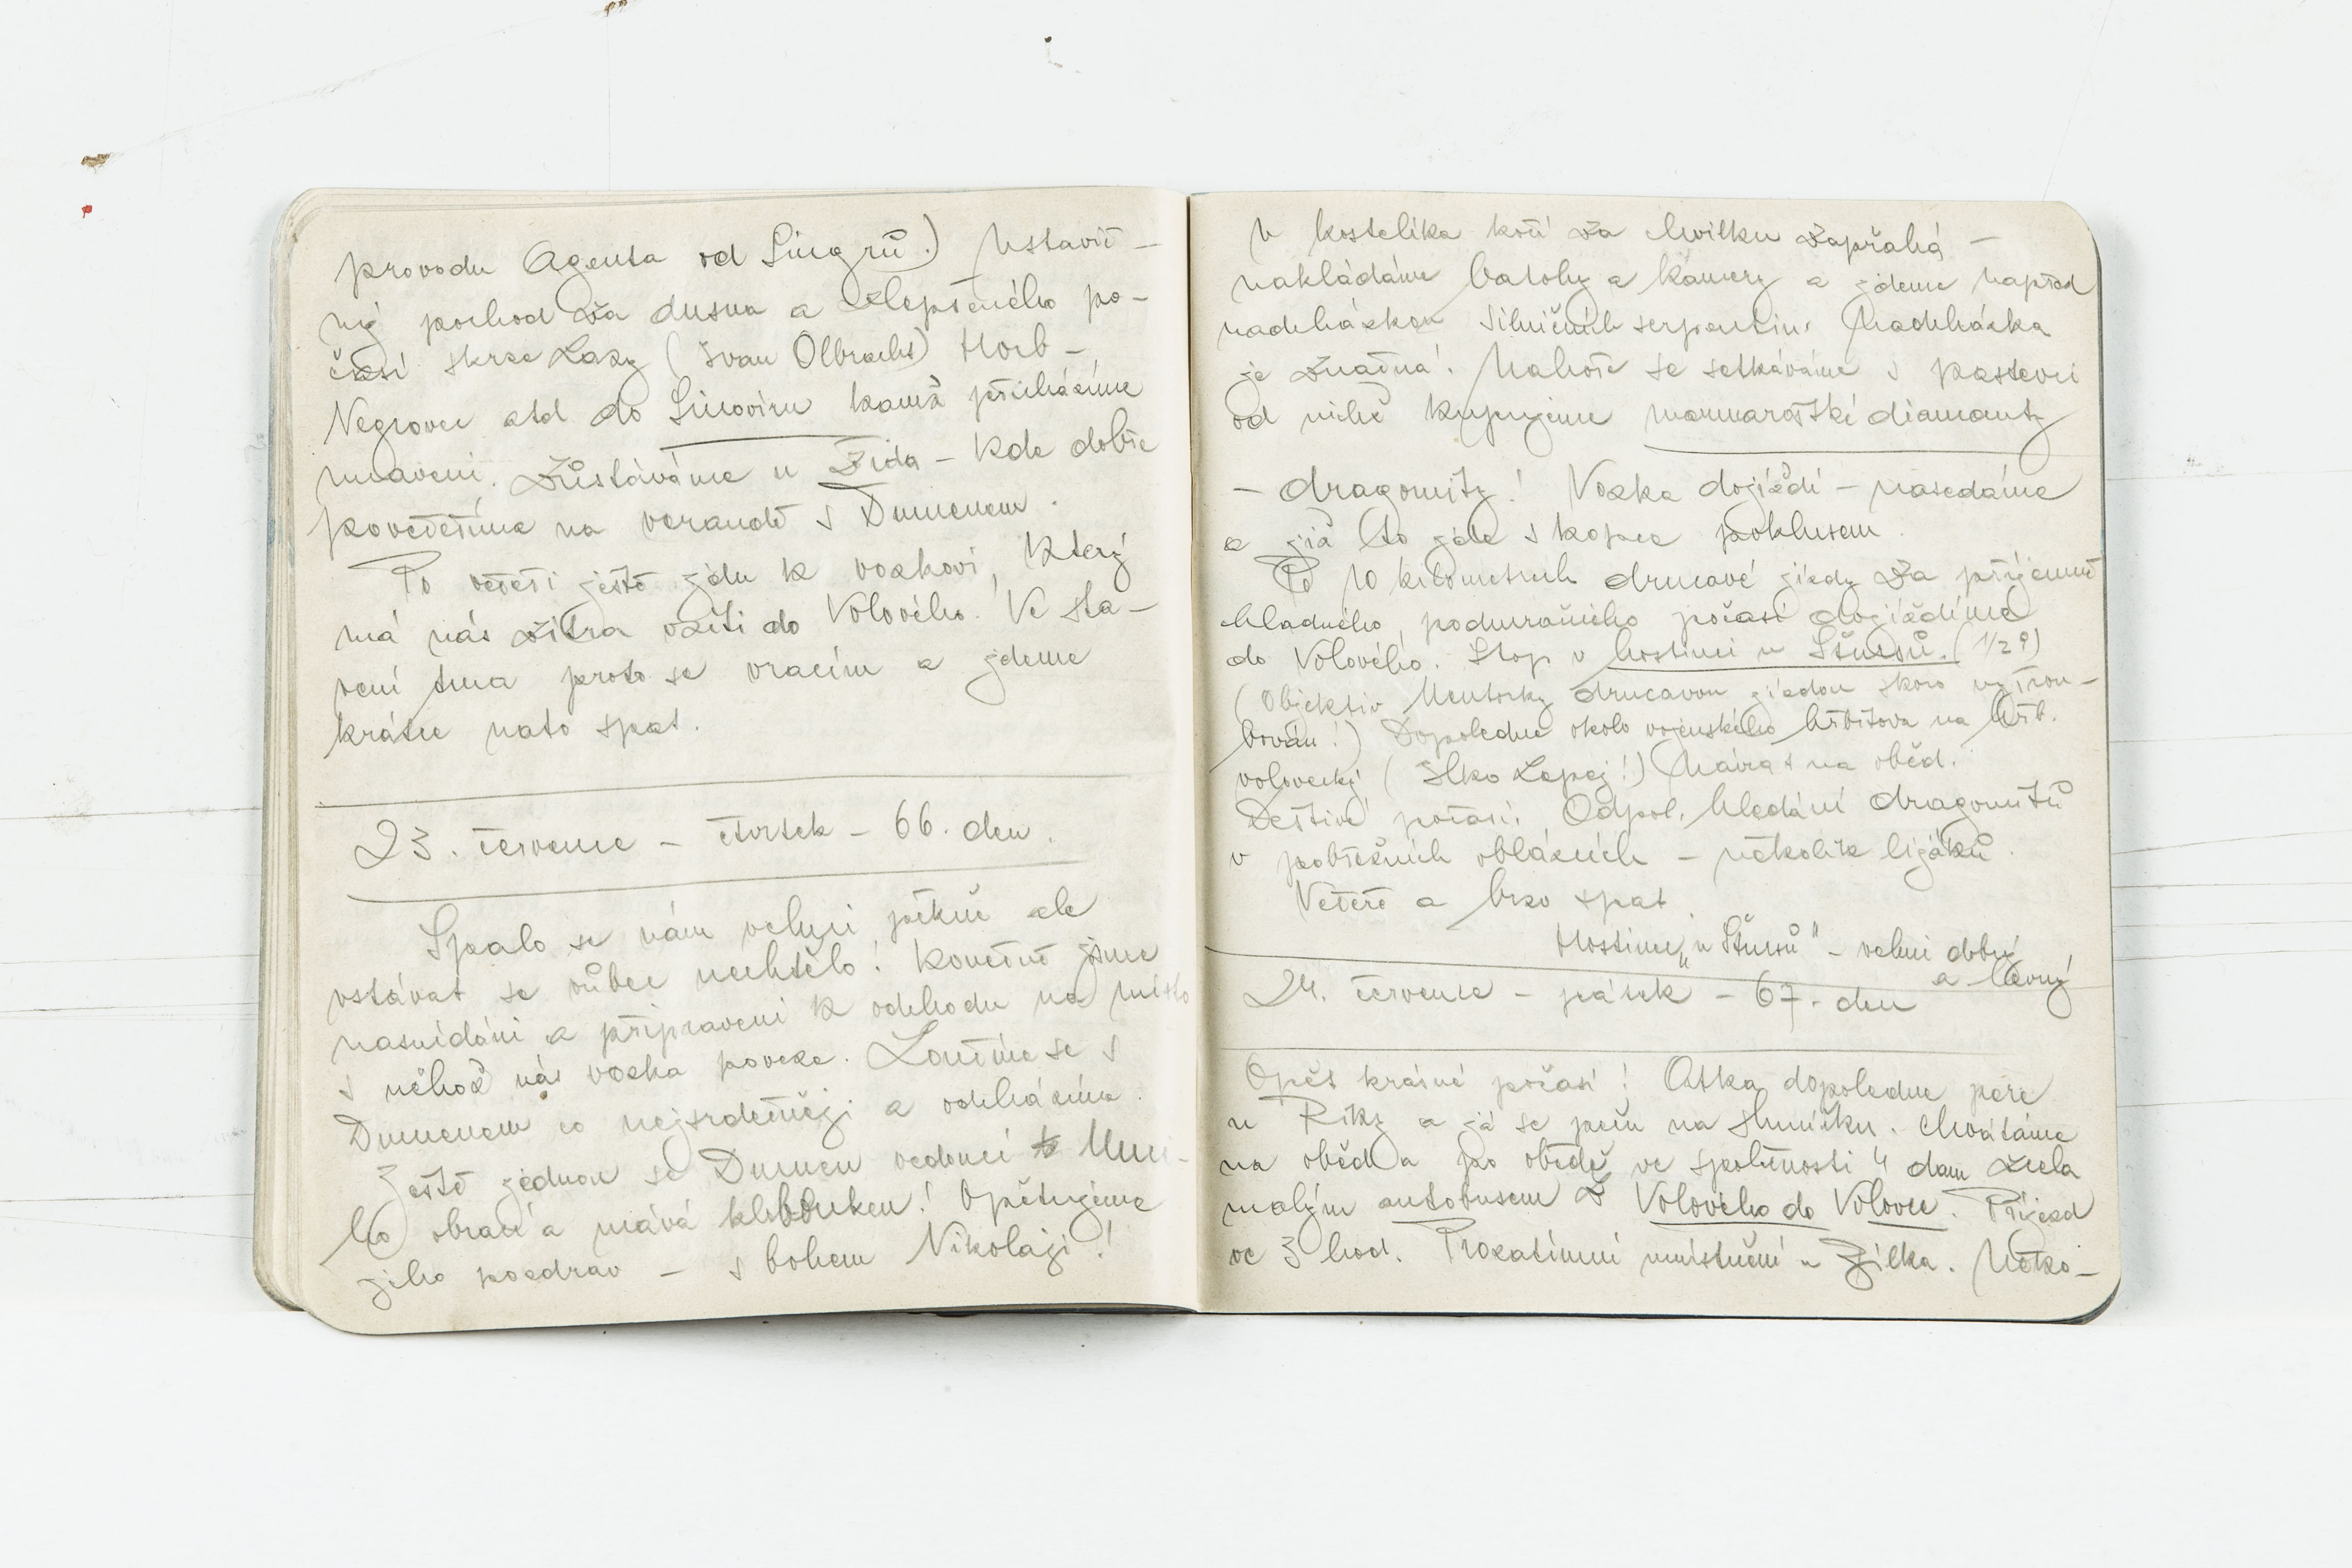 provodu Agenta od Singrů.) Ustavič-
ný pochod za dusna a zlepšeného po-
časí skrze Lazy (Ivan Olbracht) Horb-
Negrovec atd do Sinoviru kamž přicházíme
unaveni. Zůstáváme u Žida - kde dobře
povečeříme na verandě s Dumenem.
Po večeři ještě jdu k vozkovi, který
má nás zítra vézti do Volového. Ve sta-
vení tma proto se vracím a jdeme
krátce nato spat.
23. července - čtvrtek - 66. den.
Spalo se nám velmi pěkně ale
vstávat se vůbec nechtělo! Konečně jsme
nasnídáni a připraveni k odchodu na místo
s něhož nás vozka poveze. Loučíme se s
Dumenem co nejsrdečněji a odcházíme.
Ještě jednou se Dumen vedoucí
ho obrací a mává kloboukem! Opětujeme
jeho pozdrav - s bohem Nikolaji!
U kostelíka kočí za chvilku zapřahá -
nakládáme batohy a kámery a jdeme napřed
nadcházkou silničních serpentin. Nadcházka
je značná! Nahoře se setkáváme s pastevci
od nichž kupujeme marmarošské diamanty
- dragomity! Vozka dojíždí - nasedáme
a již to jde s kopce poklusem.
Po 10 kilometrech drncavé jízdy za příjemně
chladného, podmračného počasí dojíždíme
do Volového. Stop v hostinci u Štursů. (1/2 9)
(Objektiv Mentorky drncavou jízdou skoro vyšrou-
bován!) Dopoledne okolo vojenského hřbitova na hřb.
volovecký (Ilko Lepej!) Návrat na oběd.
Deštivé počasí. Odpol. hledání dragomitů
v pobřežních oblázcích - několik lijáků.
Večeře a brzo spat.
Hostinec „u Štursů" - velmi dobrý
a levný
24. července - pátek - 67. den
Opět krásné počasí! Astka dopoledne pere
u Riky a já se peču na sluníčku. Chvátáme
na oběd a po obědě ve společnosti 4 dam zcela
malým autobusem z Volového do Volovce. Příjezd
ve 3 hod. Prozatímní umístnění u Jílka. Něko-